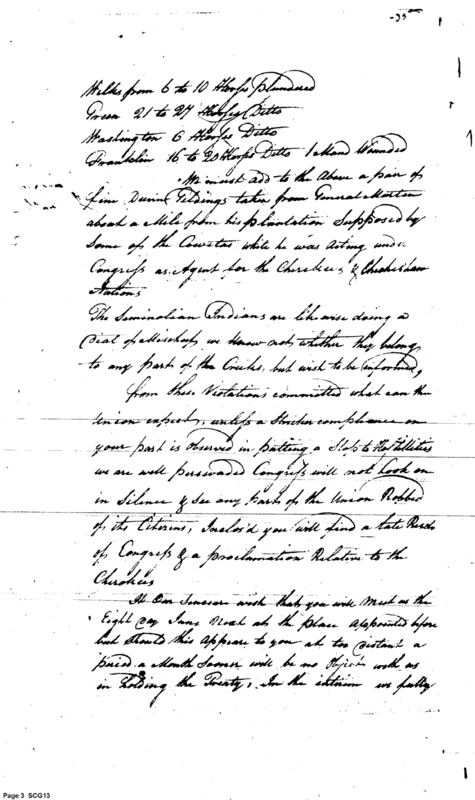 -33
Wilks from 6 to 10 Horses plundered
Green 21 to 27 Horses Ditto
Washington 6 Horses Ditto
Franklin 16 to 20 Horses Ditto 1 Man Wounded
We must add to the above a pair of
fine Geldings taken from General Martin
about a Mile from his plantation Supposed by
Some of the Cowetas while he was acting under
Congress as Agent for the Cherokees &
Nations
The Seminolian Indians are likewise doing a
deal of Mischief, we know not whether they belong
to any part of the Creeks, but wish to be informed,
from these Violations committed what can the
Union expect, unless a Stricter compliance on
your part is observed in putting a Stop to Hostillities
we are well perswaded Congress will not Look on
in Silence & See any Parts of the Union Robbed
of its Citizens, Inclos'd you will find a late
of Congress & a proclamation Relative to the
Cherokees
It Our Sincear wish that you will Meet us the
Eight day June Next at the place appointed before
but Should this appeare to you at too distant a
period a Month Sooner will be no with us
in Holding the Treaty, In the interim we fully
Page 3 SCG13